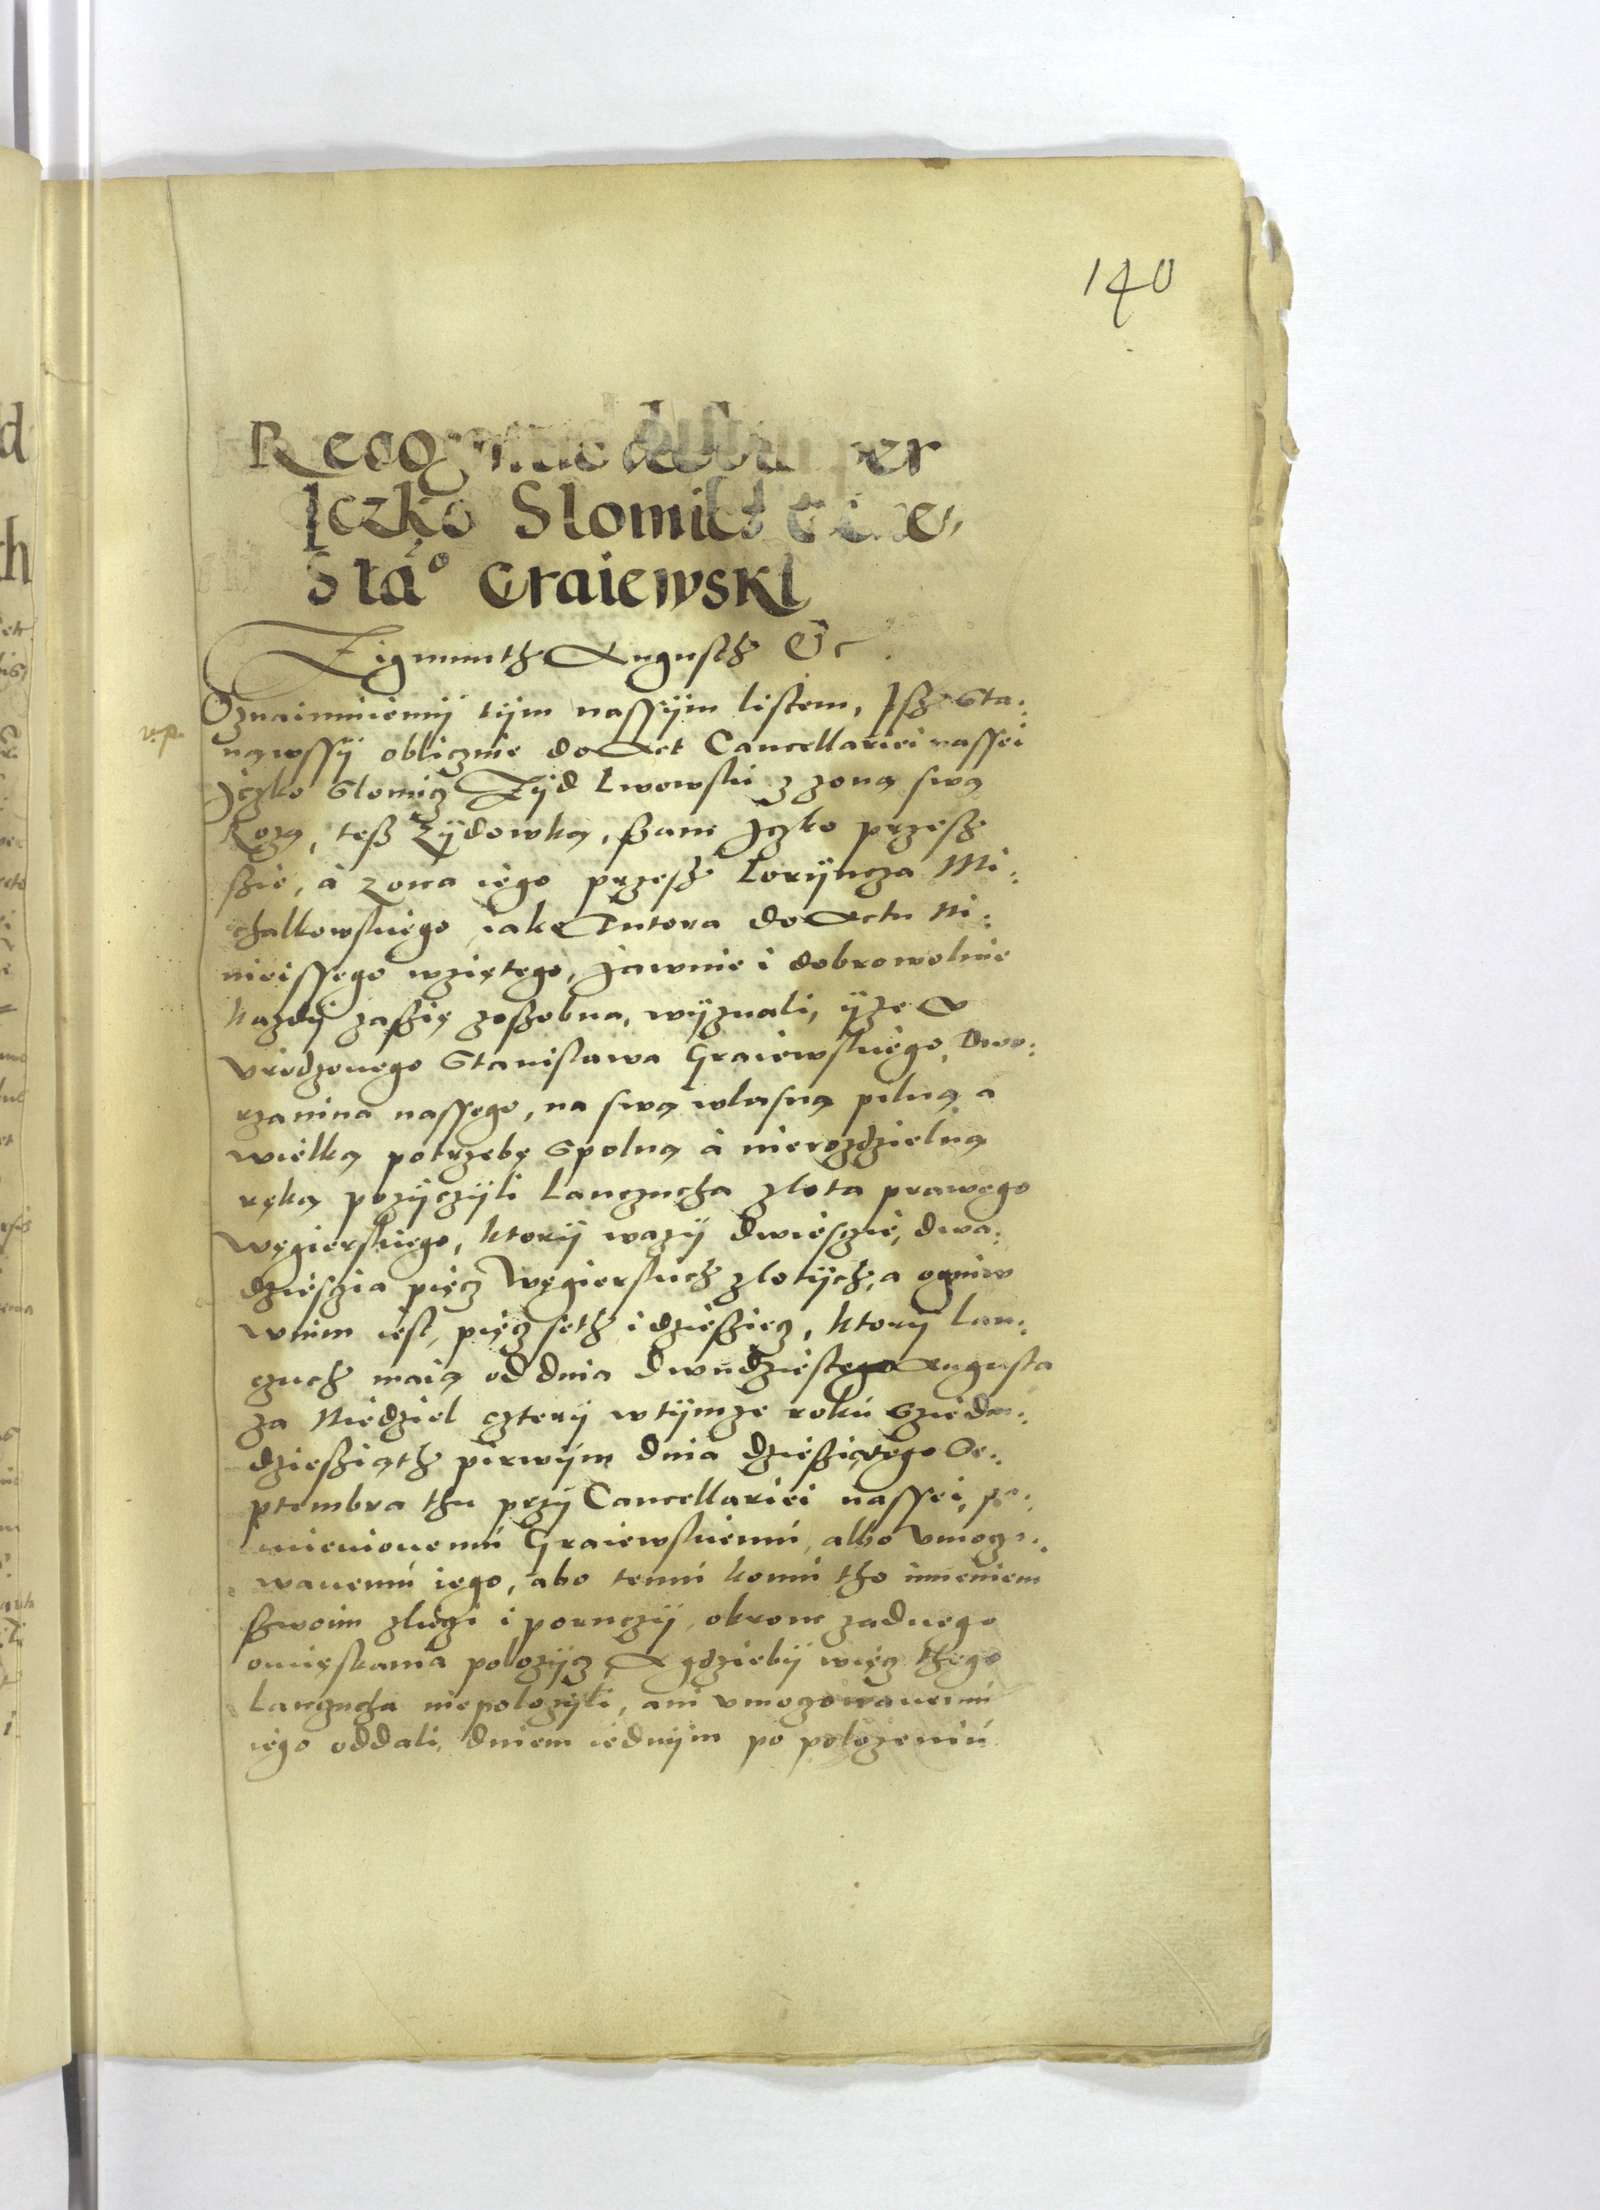 140
Recognitio debiti per
Iczko Slomicz
Sta° Graiewski
Zigmunth August Etc
Oznaimuiemÿ tÿm nassÿm listem, Isz Sta:
nąwssÿ oblicznie do Act Cancellariei nassei
Iczko Slomicz Zÿd Lwowski z zoną swą
Rozą, tesz Zÿdowką, szam Iczko przesz
szie, à zona iego przesz Lorÿncza Mi:
chalkowskiego iako Tutora do Actu Ni:
nieissego wziętego, Jawnie i dobrowolnie
kazdÿ zaszię zoszobna, wÿznali, ÿze v
vrodzonego Stanisława Graiewskiego, dwo:
rzanina nassego, na swą własną pilną a
wielką potrzebę spolną à nierozdzielną
ręką pozÿczÿli Lanczucha złota prawego
Węgierskiego, ktorÿ wazÿ dwieszie, dwa:
dzieszia pięcz Węgierskich złotÿch, a ogniw
wnim iest, pięcz seth i dziesziecz, ktorÿ Lan:
czuch maią od dnia dwudziestego Augusta
za Niedziel czterÿ wtÿmze roku Sziedm:
dziesziąth pirwÿm dnia dzieszięcego Se:
ptembra thu przÿ Cancellariei nassei, po:
mienionemu Graiewskiemu, albo vmoczo:
wanemu iego, abo temu komu tho imieniem
szwoim zlieczi i poruczÿ, okrom zadnego
omięskania położÿcz, A gdziebÿ więcz thego
Lanczucha niepolozÿli, ani vmoczowanemu
iego oddali, dniem iednÿm po polozeniu